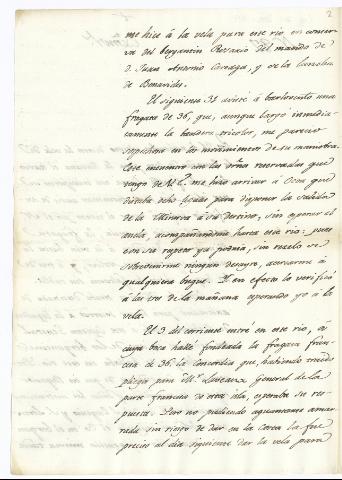 2
me hice á la vela para este rio en conser-
va del bergantin Rosario del mando de
D. Juan Antonio y de la
de Benavides.
El siguiente 31 avisté á barlovento una
fragata de 36, que, aunque largó inmedia-
tamente la bandera tricolor, me pareció
sospechosa en los movimientos de su maniobra.
Este me hizo arrivar á Ocoa que
distaba ocho leguas para disponer la salida
de la á su destino, sin esperar el
ancla, acompañandola hasta este rio: pues
con su respeto ya podria, sin recelo de
sobrevenirme ningun desayre, acercarme á
qualquiera buque. Y en efecto lo verificó
á las tres de la mañana esperando yo á la
vela.
El 3 del corriente entré en este rio, á
cuya boca hallé fondeada la fragata fran-
cesa de 36 la Concordia que habiendo traido
pliegos para Mr. General de la
parte francesa de esta isla, esperaba su res-
puesta. Pero no pudiendo aguantarse amar-
rada sin riesgo de dar en la costa la fue
preciso al dia siguiente dar la vela para